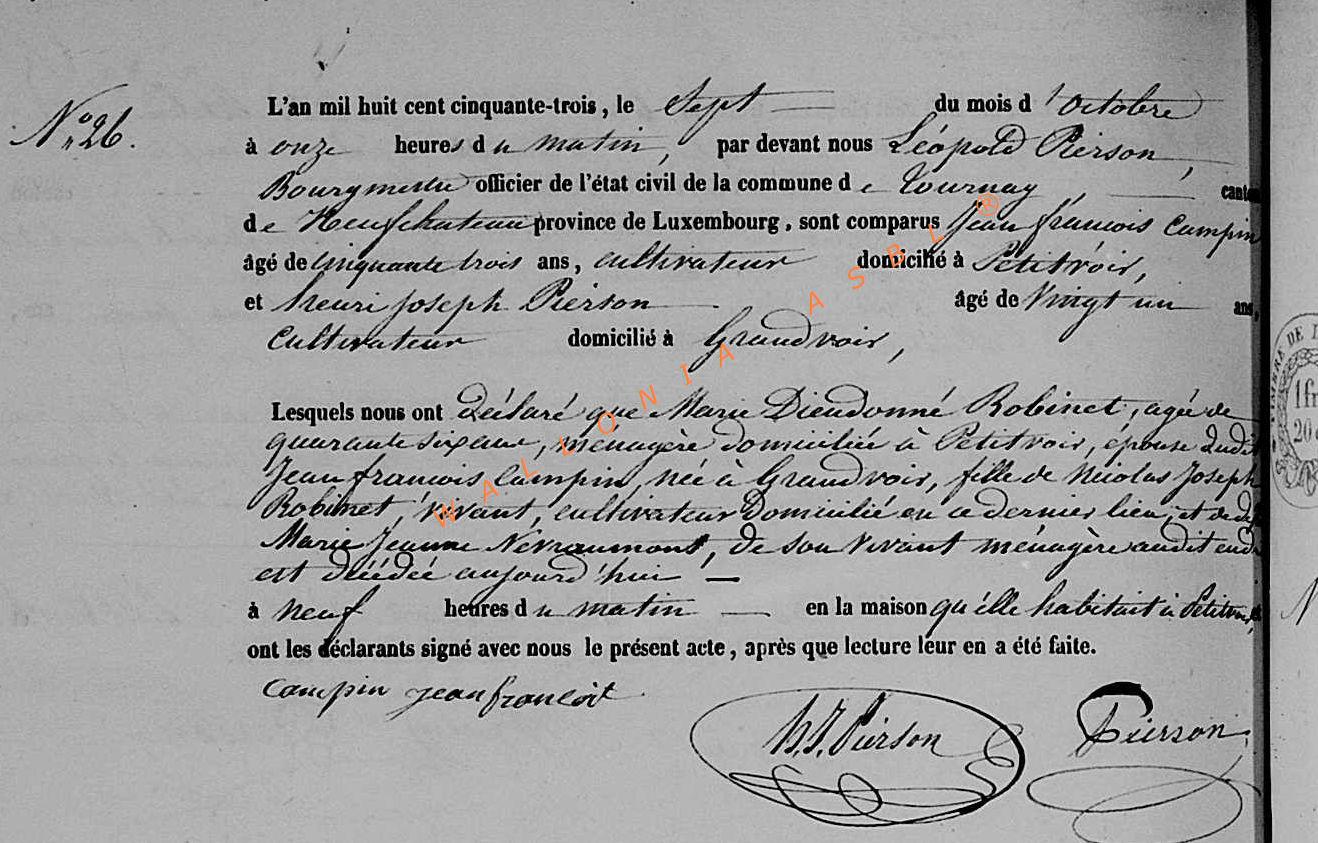 N° 26.
L'an mil huit cent cinquante-trois, le Sept du mois d'octobre
à onze heures du matin, par devant nous Léopold Pierson,
Bourgmestre officier de l'état civil de la commune de Tournay, canton
de Neufchateau province de Luxembourg, sont comparus Jean françois Campin
âgé de cinquante trois ans, cultivateur domicilié à Petitvoir,
et henri joseph Pierson âgé de vingt un ans,
cultivateur domicilié à Grandvoir,
Lesquels nous ont déclaré que Marie Dieudonné Robinet, agée de
quarante six ans, ménagère domiciliée à Petitvoir, épouse dudit
Jean françois Campin, née à Grandvoir, fille de Nicolas Joseph
Robinet, vivant, cultivateur domicilié en ce dernier lieu, et de
Marie Jeanne Nevraumont, de son vivant ménagère audit
est décédée aujourd'hui
à neuf heures du matin en la maison qu'elle habitait à Petitvoir,
ont les déclarants signé avec nous le présent acte, après que lecture leur en a été faite.
Campin jean francoit
h.J. Pierson Pierson
WALLONIA ASBL ®
1 fr
20